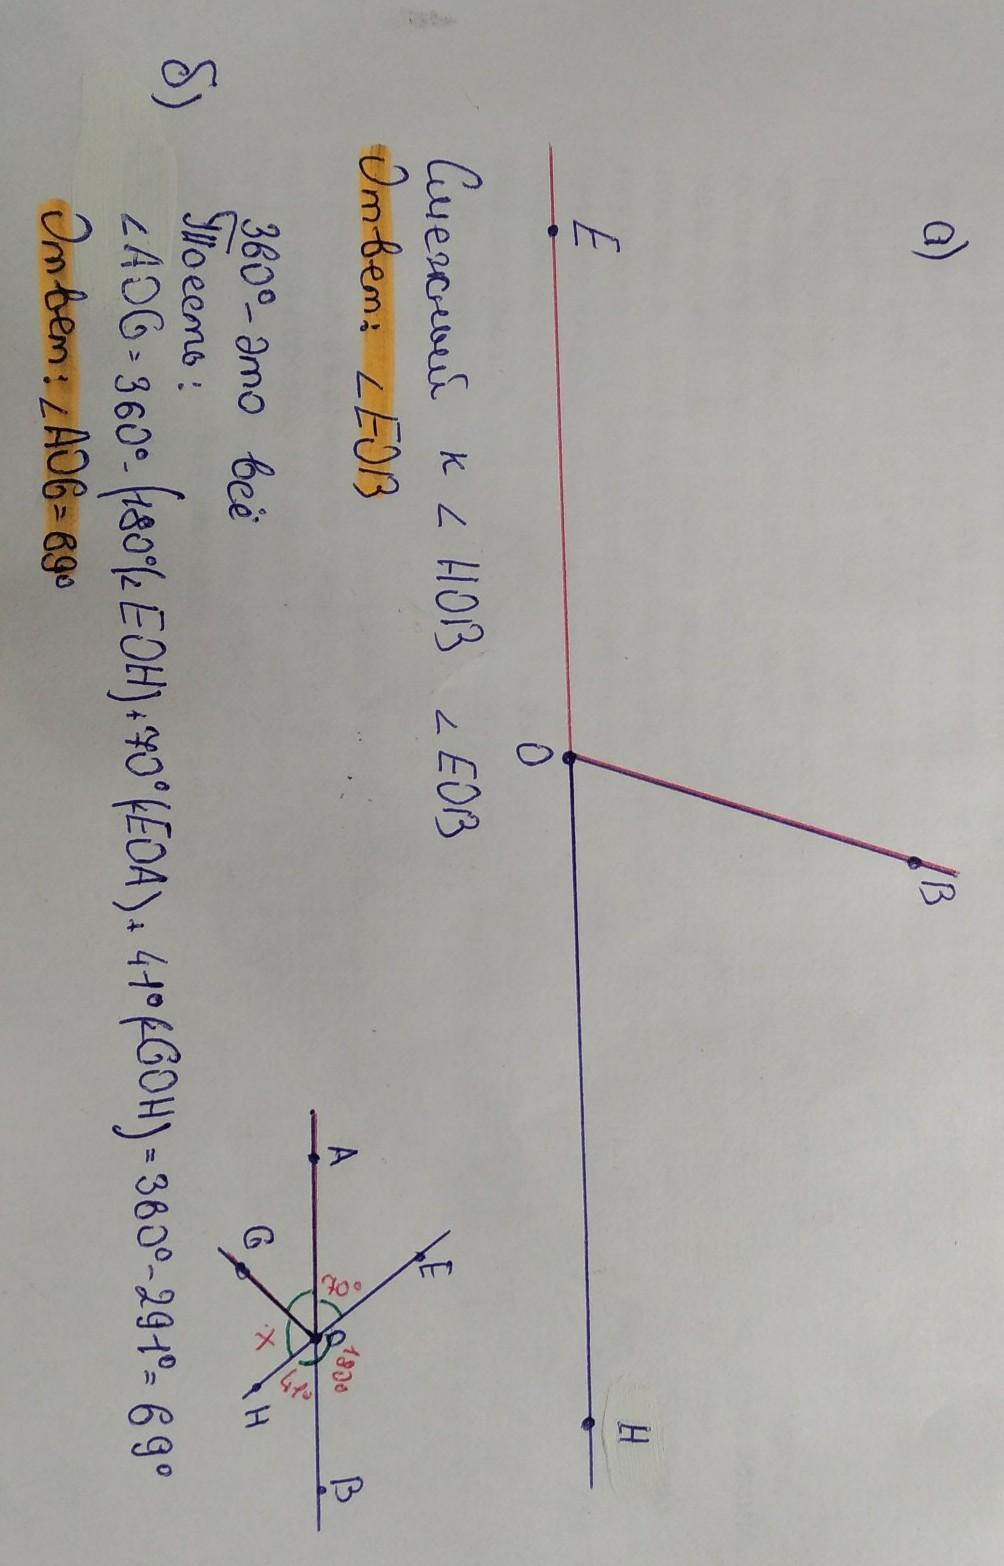 а)
E
B
O
H
Смежный к ∠ HOB ∠ EOB
Ответ: ∠EOB
б)
360° - это всё
Тоесть:
∠AOG = 360° - (180°(∠EOH) + 70°(∠EOA) + 41°(∠GOH) = 360° - 291° = 69°
Ответ: ∠AOG = 69°
A
E
70°
O
180°
G
x
41°
H
B